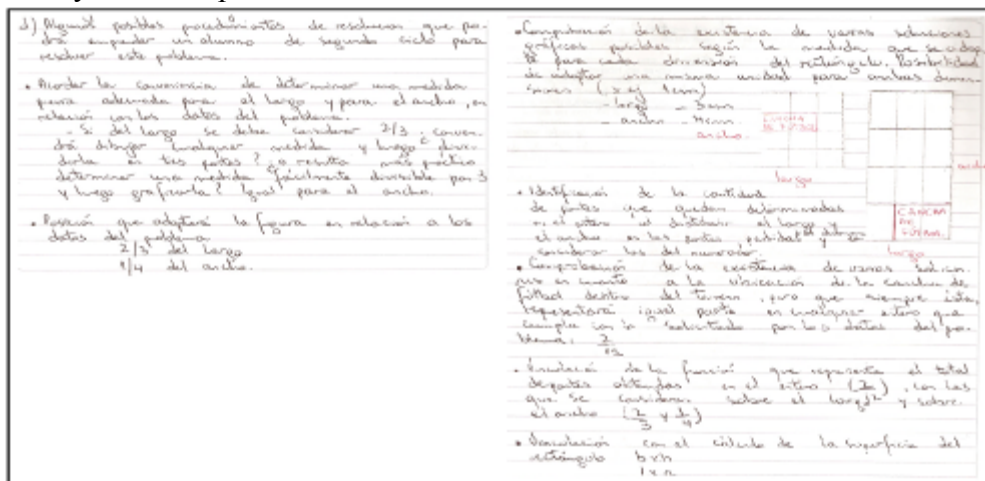 d) Algunos posibles procedimientos de resolución que po-
drá emplear un alumno de segundo ciclo para
resolver este problema.
• Acordar la conveniencia de determinar una medida
para el largo y para el ancho, en
relación con los datos del problema.
- Si del largo se debe considerar 2/3, conven-
drá dibujar cualquier medida y luego divi-
dirla en tres partes? ¿o resulta más práctico
determinar una medida fácilmente divisible por 3
y luego graficarla? Igual para el ancho.
• Posición que adoptará la figura en relación a los
datos del problema
2/3 del largo
1/4 del ancho.
• Comprobación de la existencia de varias soluciones
gráficas posibles según la medida que se
para cada dimensión del rectángulo. Posibilidad
de adoptar una misma unidad para ambas dimen-
siones (x ej 1cm)
- largo - 3cm
- ancho - 4cm
ancho
CANCHA
DE FUTBOL
largo
ancho
CANCHA
DE
FUTBOL
largo
• Identificación de la cantidad
de partes que quedan determinadas
en el entero al dividir el largo y
el ancho en las partes pedidas y
considerar las del numerador.
• Comprobación de la existencia de varias solucio-
nes en cuanto a la ubicación de la cancha de
fútbol dentro del terreno, pero que siempre ésta,
representará igual parte en cualquier entero que
cumpla con lo solicitado por los datos del pro-
blema. 2/12
• Vinculación de la fracción que representa el total
de partes obtenidas en el entero (2/12), con las
que se consideran sobre el largo y sobre
el ancho (2/3 y 1/4)
• Vinculación con el cálculo de la superficie del
rectángulo b x h
l x a